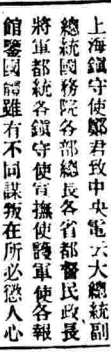 上海鎭守使鄭君致中央電云大總統副
總統國務院各部總長各省都督民政長
將軍都統各鎭守使宣撫使護軍使各報
館鑒國體雖有不同謀叛在所必懲人心